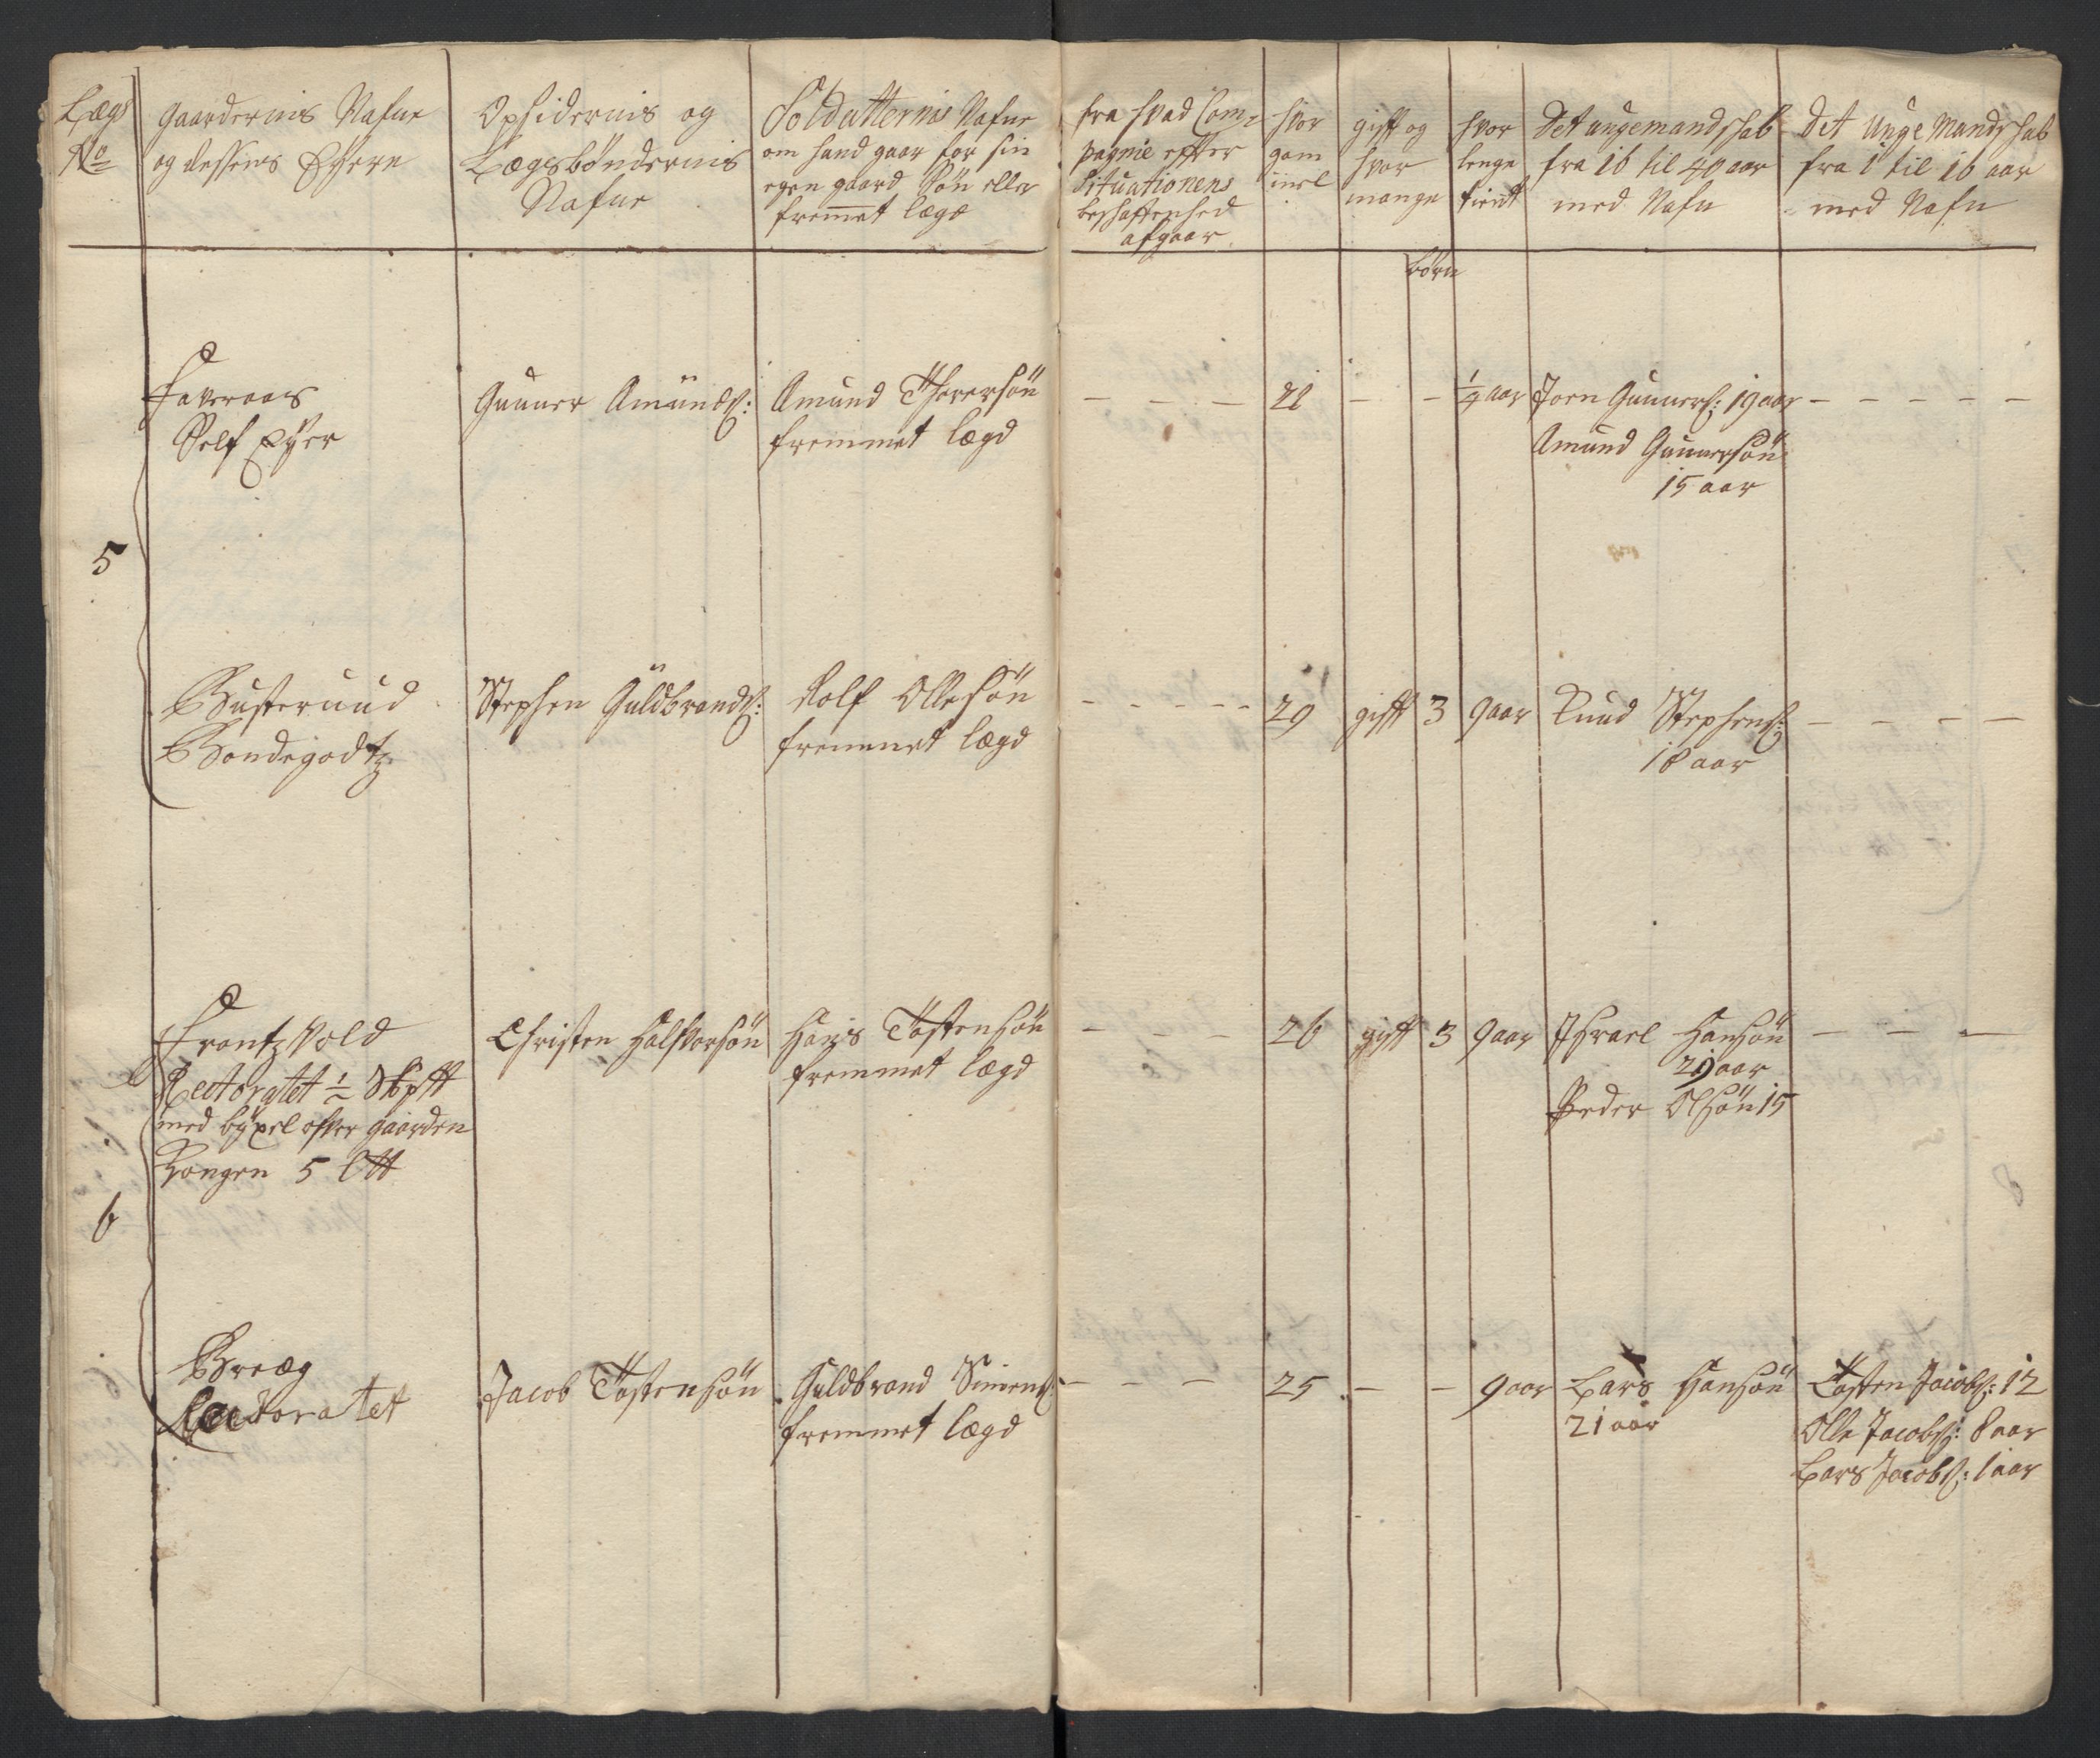 Lægs
No
Gaardernis Nafne
og dessens Eyere
Opsidernis og
Lægsbøndernis
Nafne
Soldatternis Nafne
om hand gaar for sin
egen gaard Søn eller
fremmet lægd
fra hvad Com-
pagnie effter
Situationens
beschaffenhed
afgaar
hvor
gam
mel
gifft og
hvor
mange
hvor
lenge
tient
Det ungemandschab
fra 16 til 40 aar
med Nafn
Det Unge Mandschab
fra 1 til 16 aar
med Nafn
børn
5
Faveraas
Self Eyer
Gunner Amunds:
Amund Thorersøn
fremmet lægd
— — —
22
— —
1/4 aar
Joen Gunners: 19 aar
Amund Gunnersøn
15 aar
— — — — —
Busteruud
Bondegodtz
Stephen Guldbrands:
Rolf Ollesøn
fremmet lægd
— — — — —
29
gifft
3
9 aar
Knud Stephens:
18 aar
— — — —
6
Frantzvold
Rectoratet 1/2 Skpft
med bÿxel ofver gaarden
Kongen 5 Ltt
Christen Halfvorsøn
Hans Tostensøn
fremmet lægd
— — —
26
gifft
3
9 aar
Jsrael Hansøn
29 aar
Peder Olsøn 15
— — —
Bræg
Rectoratet
Jacob Tostensøn
Guldbrand Simens:
fremmet lægd
— — —
25
— —
9 aar
Lars Hansøn
21 aar
Tosten Jacobs: 12
Olle Jacobs: 8 aar
Lars Jacobs: 1 aar